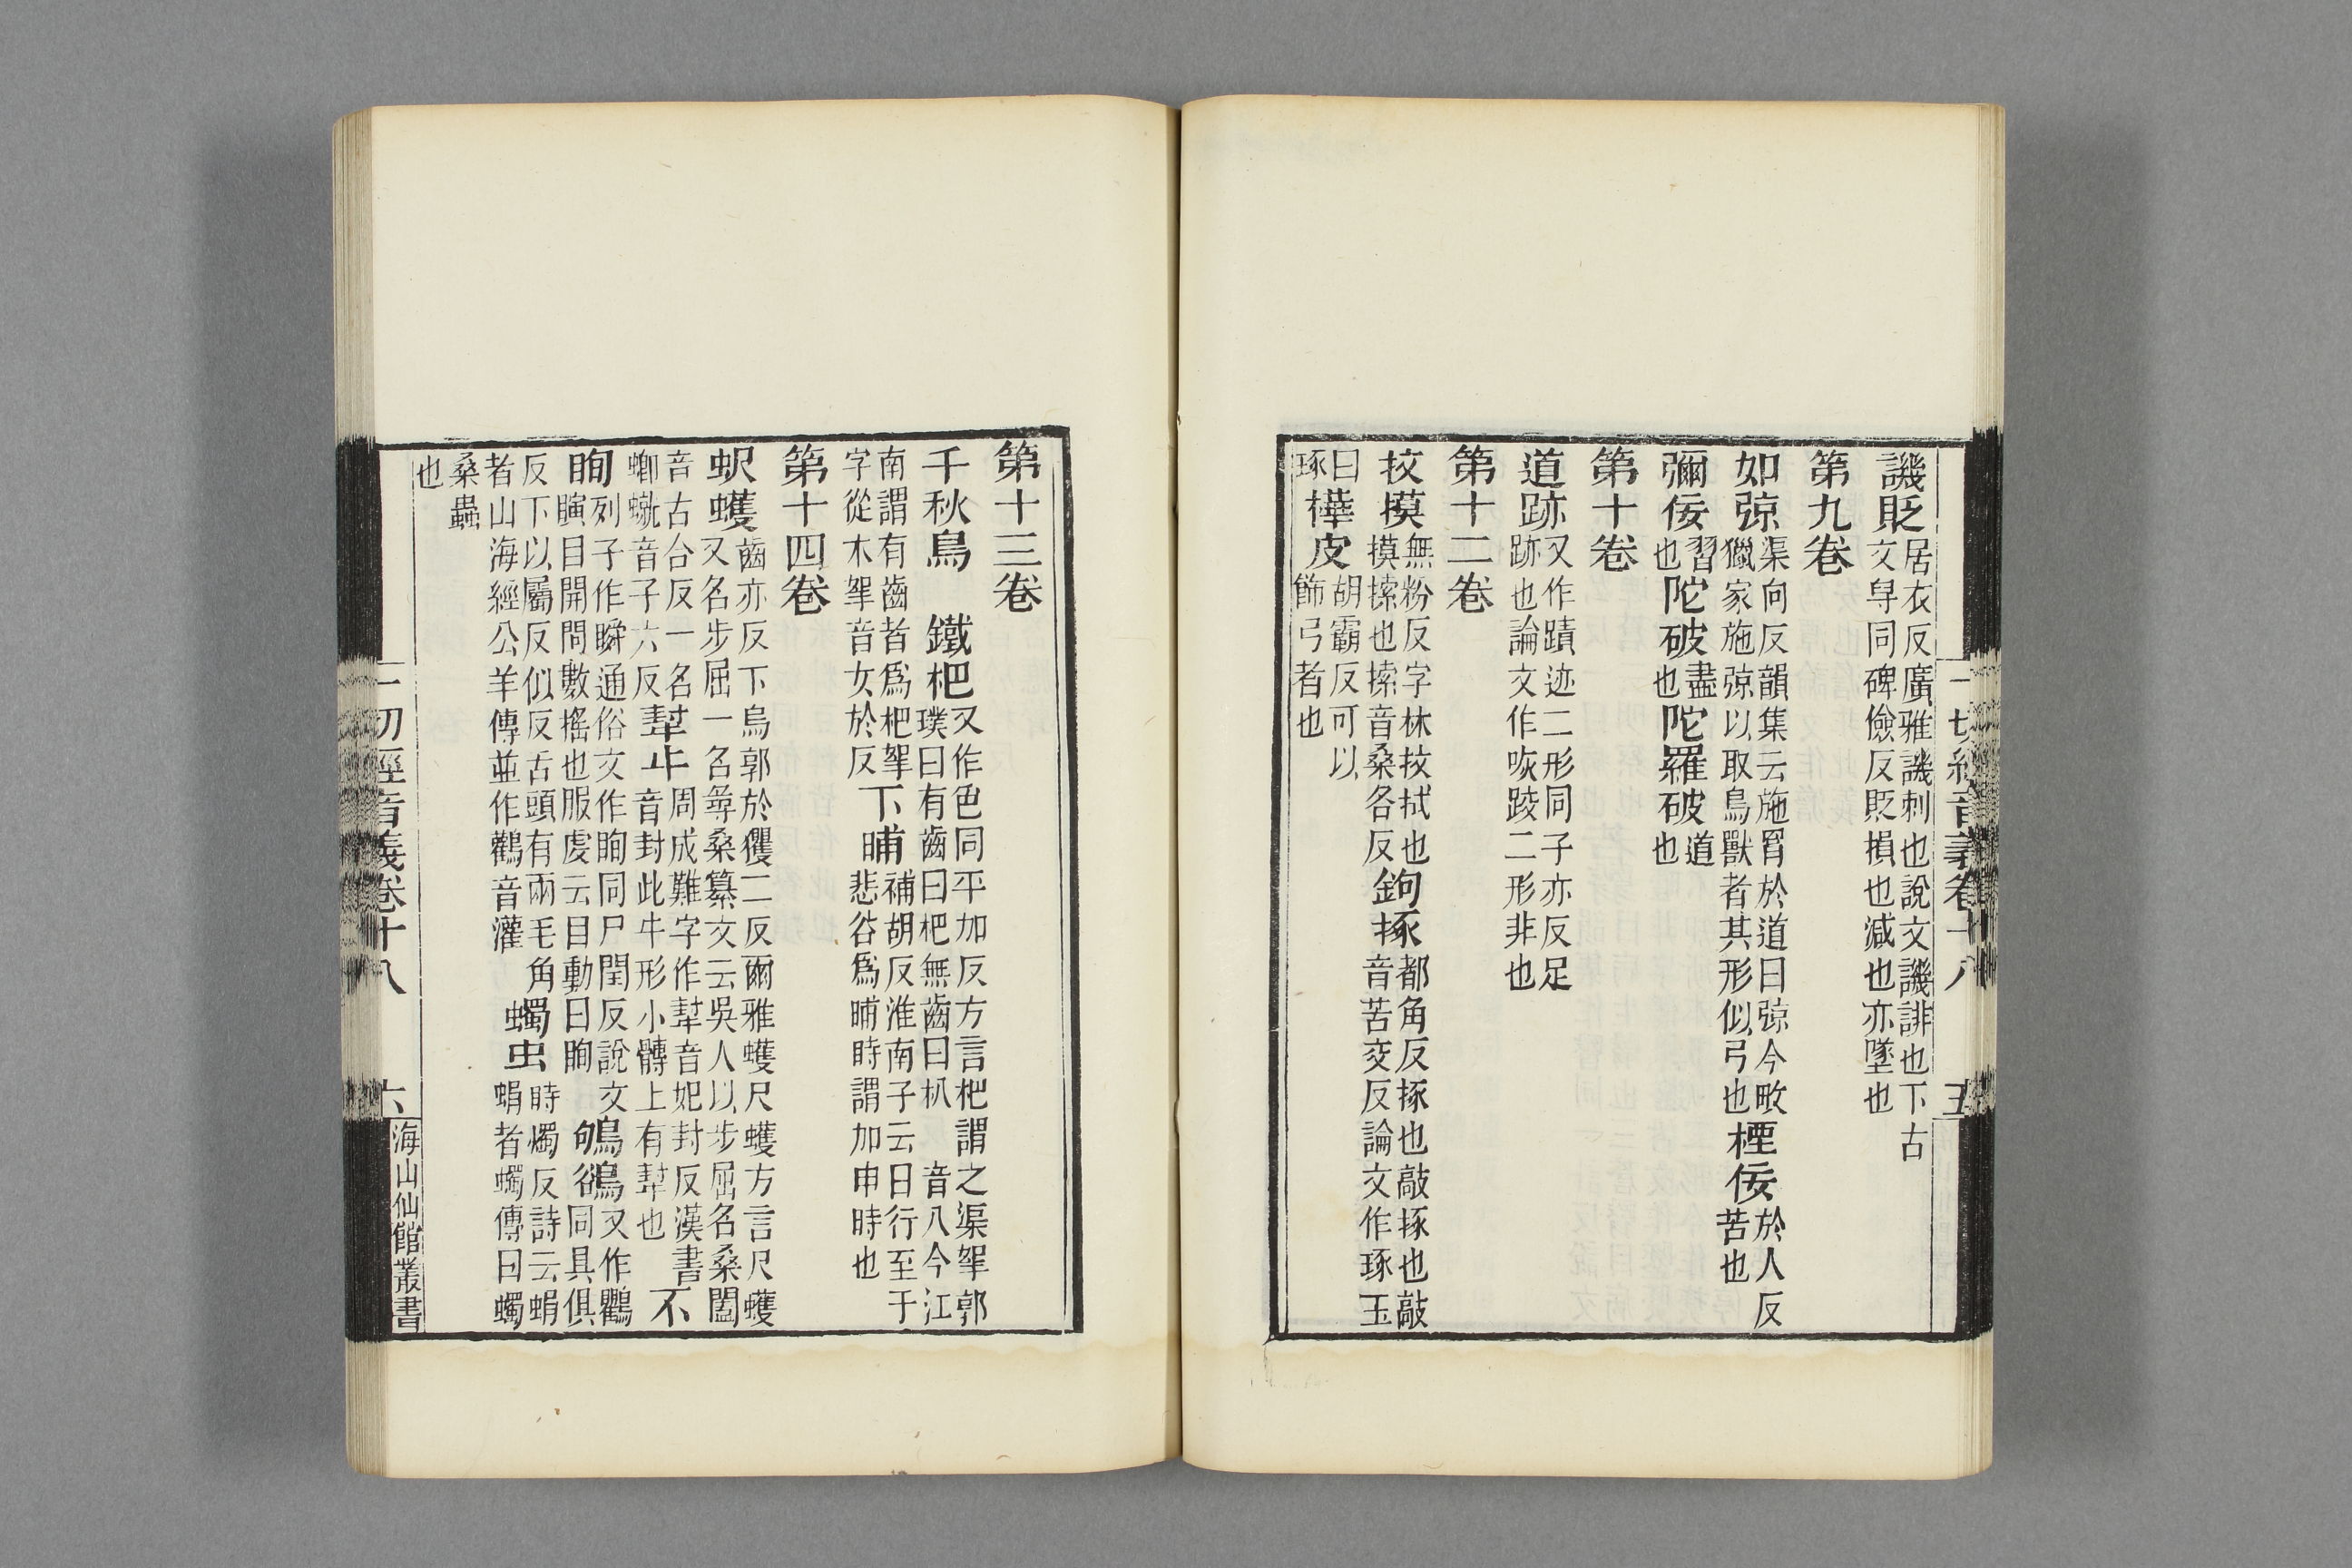 譏貶居衣反廣雅譏刺也說文譏誹也下古
文㝵同碑儉反貶損也減也亦墜也
第九卷
如弶渠向反韻集云施罥於道曰弶今畋
獵家施弶以取鳥獸者其形似弓也㮏佞於人反
苦也
彌佞習也陀破盡也陀羅破道也
第十卷
道跡又作蹟迹二形同子亦反足
跡也論文作㖑踜二形非也
第十二卷
抆摸無粉反字林抆拭也
摸㩹也㩹音桑各反鉤㧻都角反㧻也敲㧻也敲
音苦交反論文作琢玉
曰
琢樺皮胡霸反可以
飾弓者也
一切經音義卷十八 五
第十三卷
千秋鳥 鐵杷又作𣔻同平加反方言杷謂之渠挐郭
璞曰有齒曰杷無齒曰朳 音八今江
南謂有齒者爲杷挐
字從木挐音女於反下晡補胡反淮南子云日行至于
悲谷爲晡時謂加申時也
第十四卷
蚇蠖齒亦反下烏郭於攫二反爾雅蠖尺蠖方言尺蠖
又名步屈一名㝷桑纂文云吳人以步屈名桑闔
音古合反一名
蝍䗘音子六反犎牛音封此牛形小髆上有犎也
周成難字作犎音妃封反漢書不
眴列子作瞬通俗文作眴同尸閏反說文
瞚目開閉數搖也服虔云目動曰眴鴝鵒又作鸜
同具俱
反下以屬反似反舌頭有兩毛角
者山海經公羊傳並作鸛音灌蠋虫時燭反詩云蜎
蜎者蠋傳曰蠋
桑蟲
也
一切經音義卷十八 六
海山仙館叢書